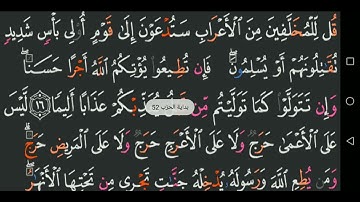 قُل لِّلْمُخَلَّفِينَ مِنَ ٱلْأَعْرَابِ سَتُدْعَوْنَ إِلَىٰ قَوْمٍ أُو۟لِى بَأْسٍ شَدِيدٍ
تُقَٰتِلُونَهُمْ أَوْ يُسْلِمُونَ ۖ فَإِن تُطِيعُوا۟ يُؤْتِكُمُ ٱللَّهُ أَجْرًا حَسَنًا ۖ
وَإِن تَتَوَلَّوْا۟ كَمَا تَوَلَّيْتُم مِّن يُعَذِّبْكُمْ عَذَابًا أَلِيمًا ١٦ لَّيْسَ
بداية الحزب 52
عَلَى ٱلْأَعْمَىٰ حَرَجٌ وَلَا عَلَى ٱلْأَعْرَجِ حَرَجٌ وَلَا عَلَى ٱلْمَرِيضِ حَرَجٌ ۗ
وَمَن يُطِعِ ٱللَّهَ وَرَسُولَهُۥ يُدْخِلْهُ جَنَّٰتٍ تَجْرِى مِن تَحْتِهَا ٱلْأَنْهَٰرُ ۖ